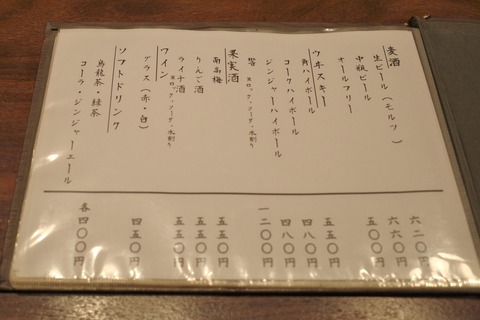 麦酒
生ビール（モルツ）
六二〇円
中瓶ビール
六六〇円
オールフリー
五〇〇円
ウヰスキー
角ハイボール
五五〇円
コークハイボール
四八〇円
ジンジャーハイボール
四八〇円
※ロック・ソーダ・水割り
一二〇〇円
果実酒
南高梅
五五〇円
りんご酒
五五〇円
ライチ酒
五五〇円
※ロック・ソーダ・水割り
ワイン
グラス（赤・白）
四五〇円
ソフトドリンク
烏龍茶・緑茶
コーラ・ジンジャーエール
各四〇〇円